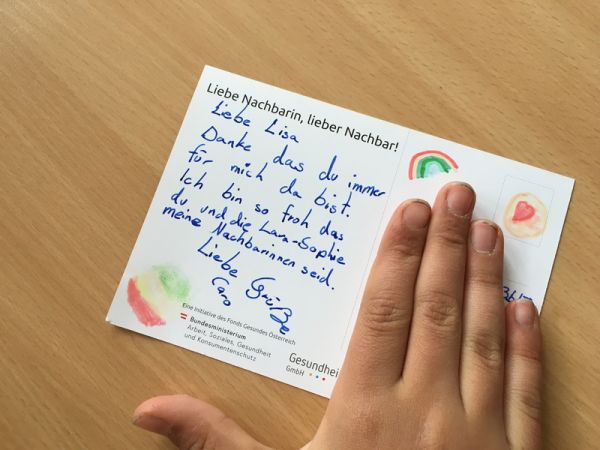 Liebe Nachbarin, lieber Nachbar!
Liebe Lisa
Danke das du immer
für mich da bist.
Ich bin so froh das
du und die Lara-Sophie
meine Nachbarinnen seid.
Liebe Grüße
Caro
Eine Initiative des Fonds Gesundes Österreich
Bundesministerium
Arbeit, Soziales, Gesundheit
und Konsumentenschutz
GmbH